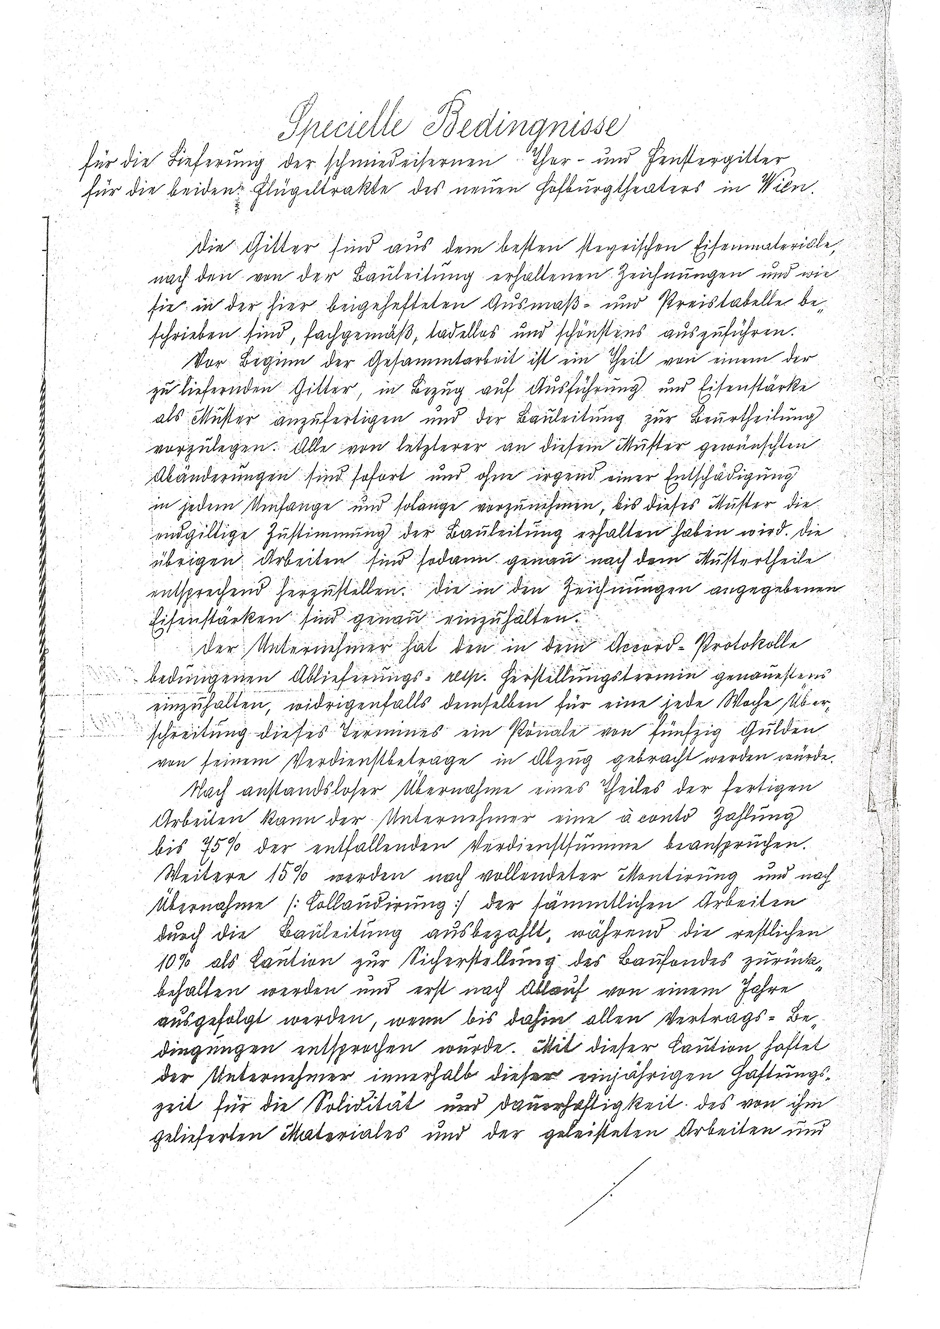 Specielle Bedingnisse
für die Lieferung der schmiedeisernen Thor- und Fenstergitter
für die beiden Flügeltrakte des neuen Hofburgtheaters in Wien.
Die Gitter sind aus dem besten steyrischen Eisenmateriale,
nach den von der Bauleitung erhaltenen Zeichnungen und wie
sie in der hier beigehefteten Ausmaß- und Preistabelle be-
schrieben sind, fachgemäß, tadellos und schönstens auszuführen.
Vor Beginn der Gesammtarbeit ist ein Theil von einem der
zu liefernden Gitter, in Bezug auf Ausführung und Eisenstärke
als Muster anzufertigen und der Bauleitung zur Beurtheilung
vorzulegen. Alle von letzterer an diesem Muster gewünschten
Abänderungen sind sofort und ohne irgend einer Entschädigung
in jedem Umfange und solange vorzunehmen, bis dieses Muster die
endgiltige Zustimmung der Bauleitung erhalten haben wird. Die
übrigen Arbeiten sind sodann genau nach dem Mustertheile
entsprechend herzustellen. Die in den Zeichnungen angegebenen
Eisenstärken sind genau einzuhalten.
Der Unternehmer hat den in dem Accord-Protokolle
bedungenen Ablieferungs- resp. Herstellungstermin genauestens
einzuhalten, widrigenfalls demselben für eine jede Woche Über-
schreitung dieses Termines ein Pönale von fünfzig Gulden
von seinem Verdienstbetrage in Abzug gebracht werden würde.
Nach anstandsloser Übernahme eines Theiles der fertigen
Arbeiten kann der Unternehmer eine à conto Zahlung
bis 75% der entfallenden Verdienstsumme beanspruchen.
Weitere 15% werden nach vollendeter Montirung und nach
Übernahme /: Collaudirung :/ der sämmtlichen Arbeiten
durch die Bauleitung ausbezahlt, während die restlichen
10% als Caution zur Sicherstellung des Baufondes zurück-
behalten werden und erst nach Ablauf von einem Jahre
ausgefolgt werden, wenn bis dahin allen Vertrags-Be-
dingungen entsprochen wurde. Mit dieser Caution haftet
der Unternehmer innerhalb dieser einjährigen Haftungs-
zeit für die Solidität und Dauerhaftigkeit des von ihm
gelieferten Materiales und der geleisteten Arbeiten und
./.